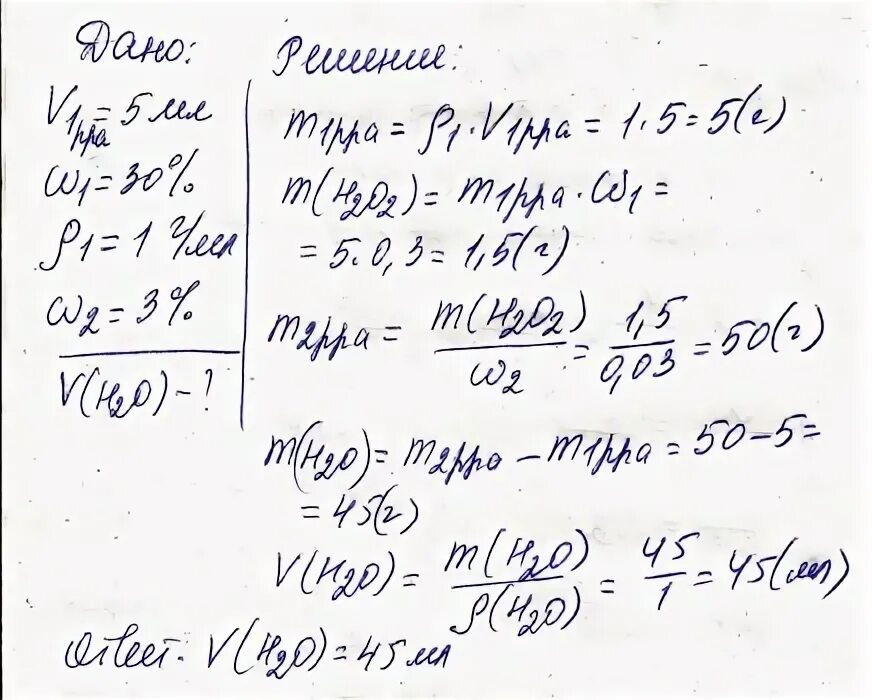 Дано:
V1рра = 5 мл
ω1 = 30%
ρ1 = 1 г/мл
ω2 = 3%
V(H2O) - ?
Решение:
m1рра = ρ1 · V1рра = 1 · 5 = 5 (г)
m(H2O2) = m1рра · ω1 =
= 5 · 0,3 = 1,5 (г)
m2рра = m(H2O2) / ω2 = 1,5 / 0,03 = 50 (г)
m(H2O) = m2рра - m1рра = 50 - 5 =
= 45 (г)
V(H2O) = m(H2O) / ρ(H2O) = 45 / 1 = 45 (мл)
Ответ: V(H2O) = 45 мл